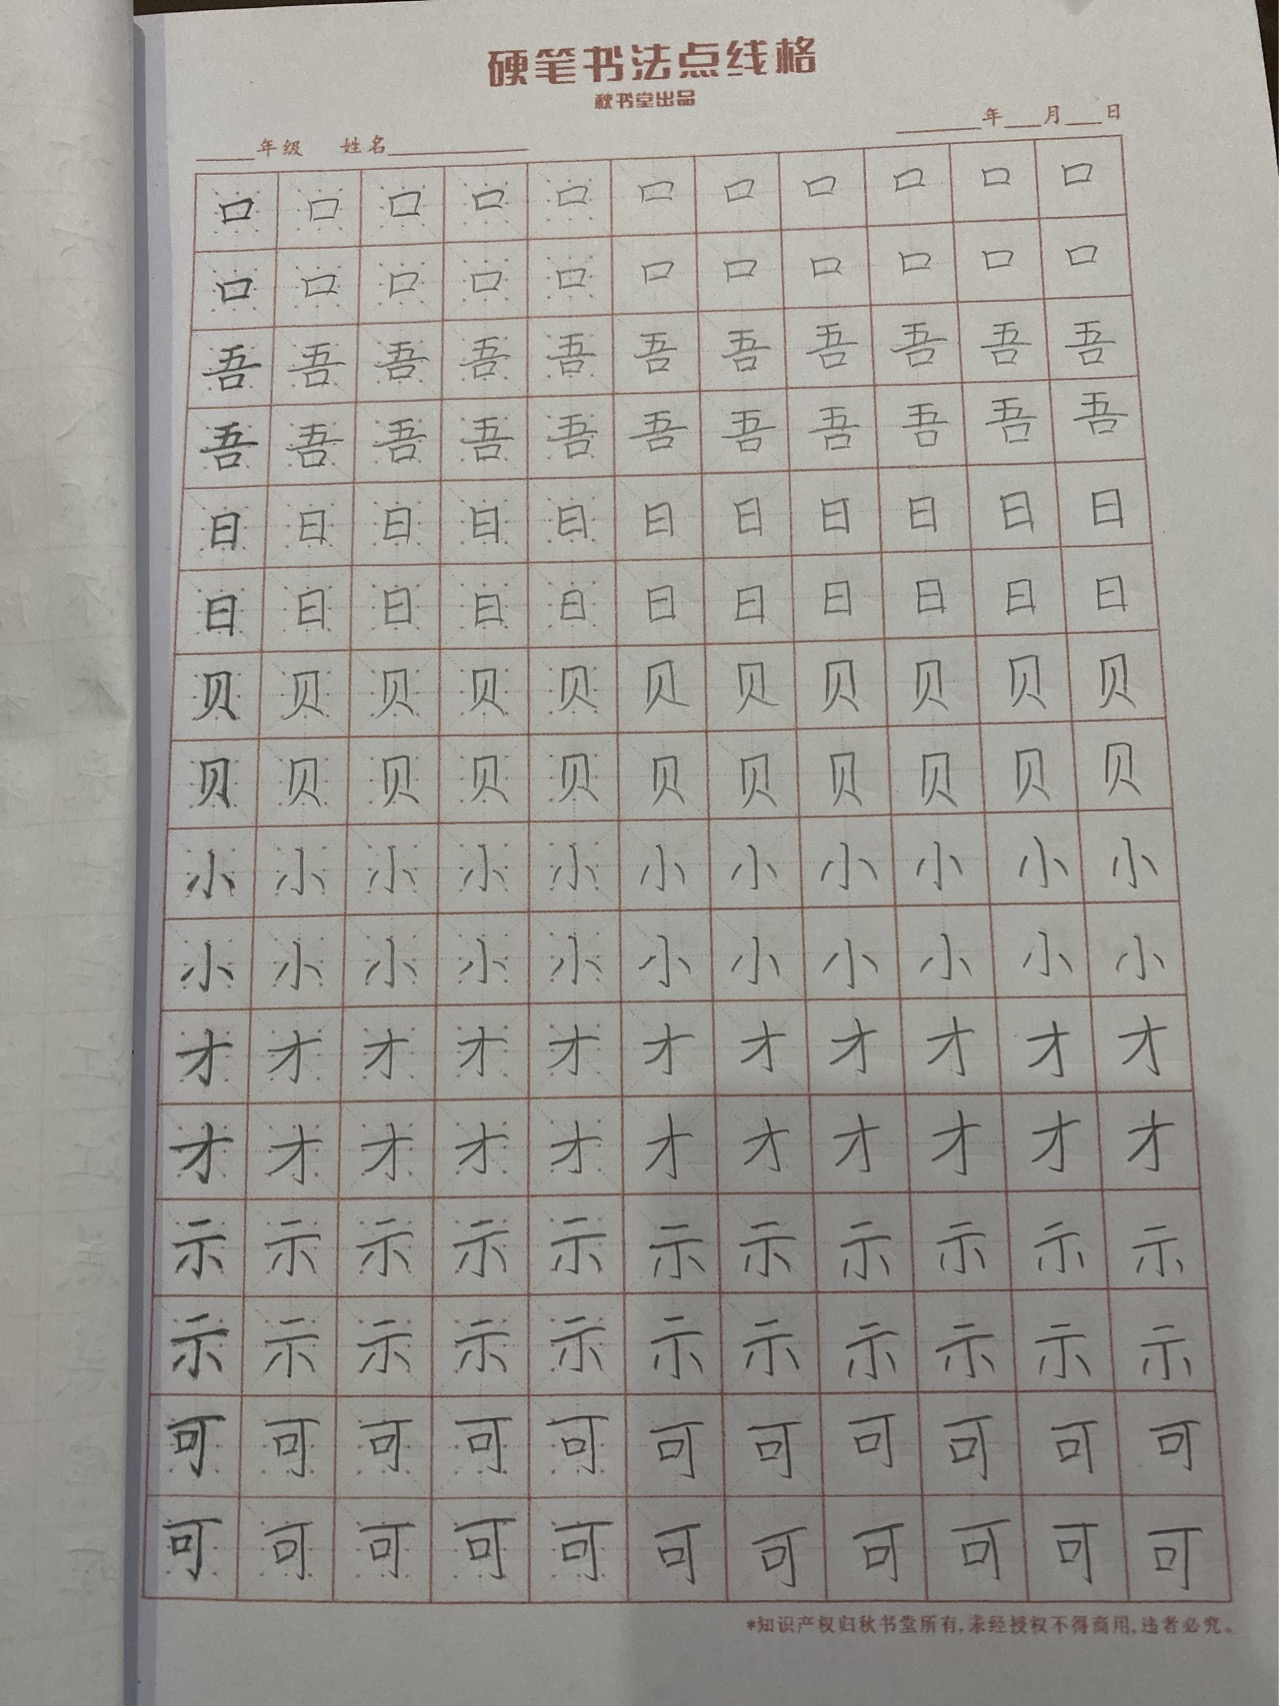 硬笔书法点线格
秋书堂出品
____年级 姓名________ ____年__月__日
口口口口口口口口口口口
口口口口口口口口口口口
吾吾吾吾吾吾吾吾吾吾吾
吾吾吾吾吾吾吾吾吾吾吾
日日日日日日日日日日日
日日日日日日日日日日日
贝贝贝贝贝贝贝贝贝贝贝
贝贝贝贝贝贝贝贝贝贝贝
小小小小小小小小小小小
小小小小小小小小小小小
才才才才才才才才才才才
才才才才才才才才才才才
示示示示示示示示示示示
示示示示示示示示示示示
可可可可可可可可可可可
可可可可可可可可可可可
*知识产权归秋书堂所有,未经授权不得商用,违者必究。